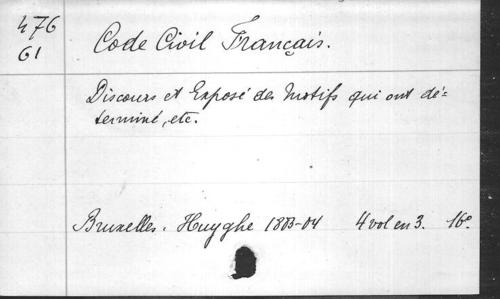 476
61
Code Civil Français.
Discours et Exposé des Motifs qui ont dé=
terminé, etc.
Bruxelles. Huyghe 1803-04 4 vol en 3. 16°